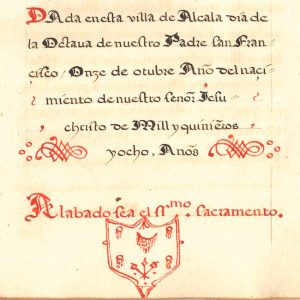 DAda enesta villa de Alcala dia de
la Octava de nuestro Padre san Fran-
cisco / Onze de otubre Año del naci-
miento de nuestro señor Iesu
christo de Mill y quinientos
y ocho, Años
Alabado sea el ssmo. sacramento.